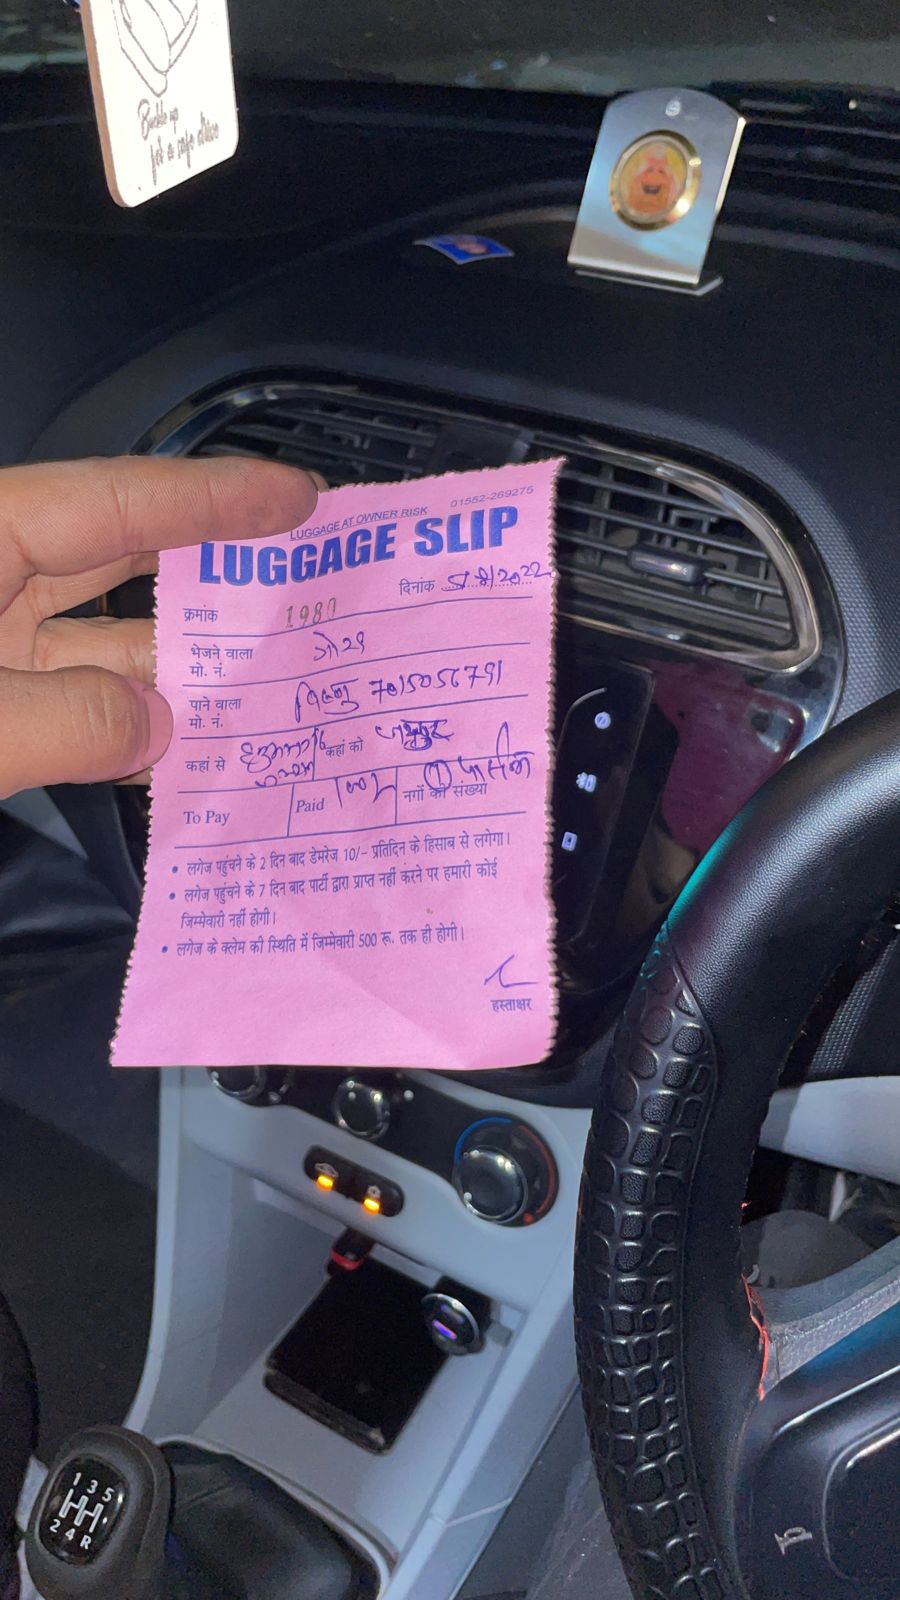 Buckle up
for a safe drive
LUGGAGE AT OWNER RISK 01552-269275
LUGGAGE SLIP
क्रमांक 1980 दिनांक 2022
भेजने वाला
मो. नं.
पाने वाला विष्णु 7015056791
मो. नं.
कहां से कहां को जयपुर
To Pay Paid 100/- नगों की संख्या ① पार्सल
• लगेज पहुंचने के 2 दिन बाद डेमरेज 10/- प्रतिदिन के हिसाब से लगेगा।
• लगेज पहुंचने के 7 दिन बाद पार्टी द्वारा प्राप्त नहीं करने पर हमारी कोई
जिम्मेवारी नहीं होगी।
• लगेज के क्लेम की स्थिति में जिम्मेवारी 500 रू. तक ही होगी।
हस्ताक्षर
1 3 5
2 4 R